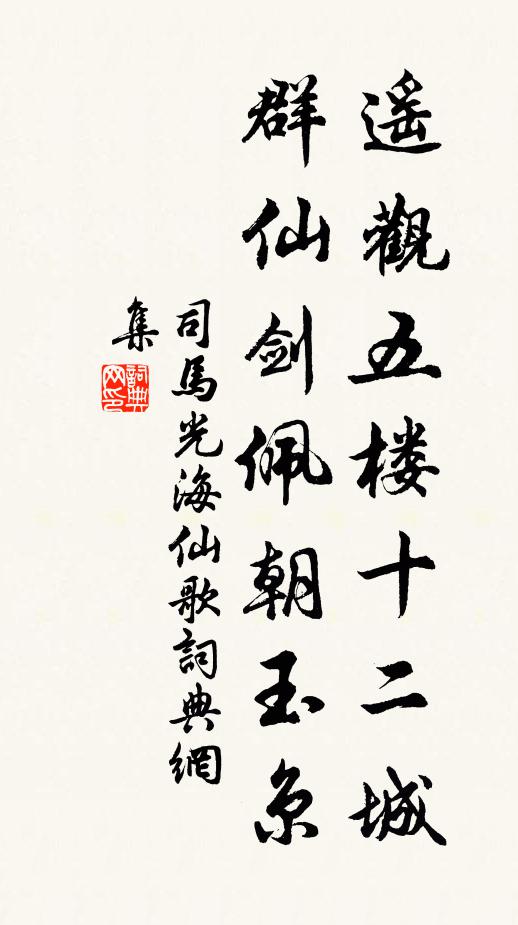 遥觀五楼十二城
群仙剑佩朝玉京
司馬光海仙歌詞典網
集
詞典
网印